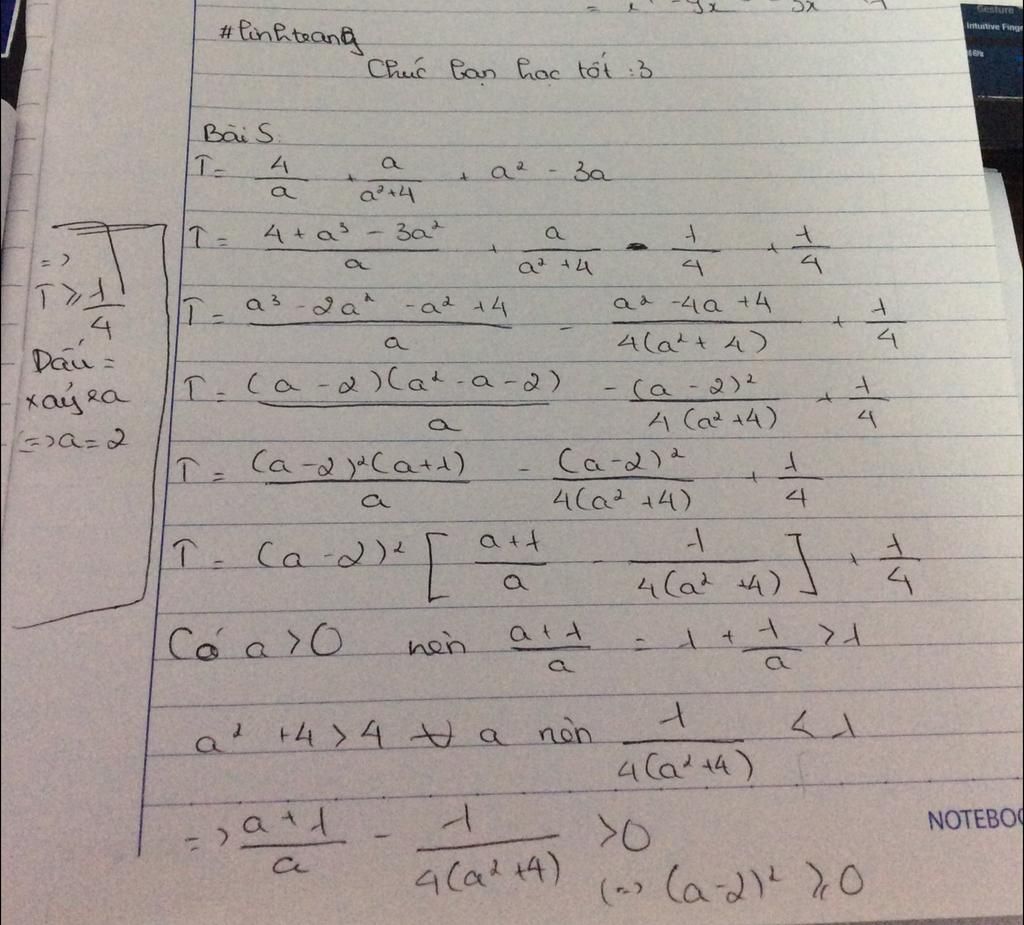 #linhtrang
Chúc bạn học tốt :3
Bài 5.
T = 4/a + a/(a²+4) + a² - 3a
T = (4 + a³ - 3a²)/a + a/(a²+4) - 1/4 + 1/4
T = (a³ - 2a² - a² + 4)/a - (a² - 4a + 4)/(4(a² + 4)) + 1/4
T = ((a - 2)(a² - a - 2))/a - (a - 2)²/(4(a² + 4)) + 1/4
T = ((a-2)²(a+1))/a - (a-2)²/(4(a² +4)) + 1/4
T = (a-2)² [ (a+1)/a - 1/(4(a² +4)) ] + 1/4
Có a > 0 nên (a+1)/a = 1 + 1/a > 1
a² + 4 > 4 ∀ a nên 1/(4(a²+4)) < 1
=> (a+1)/a - 1/(4(a²+4)) > 0
(=) (a-2)² ≥ 0
=>
T ≥ 1/4
Dấu =
xảy ra
(=> a = 2
NOTEBOO
Gesture
Intuitive Fing